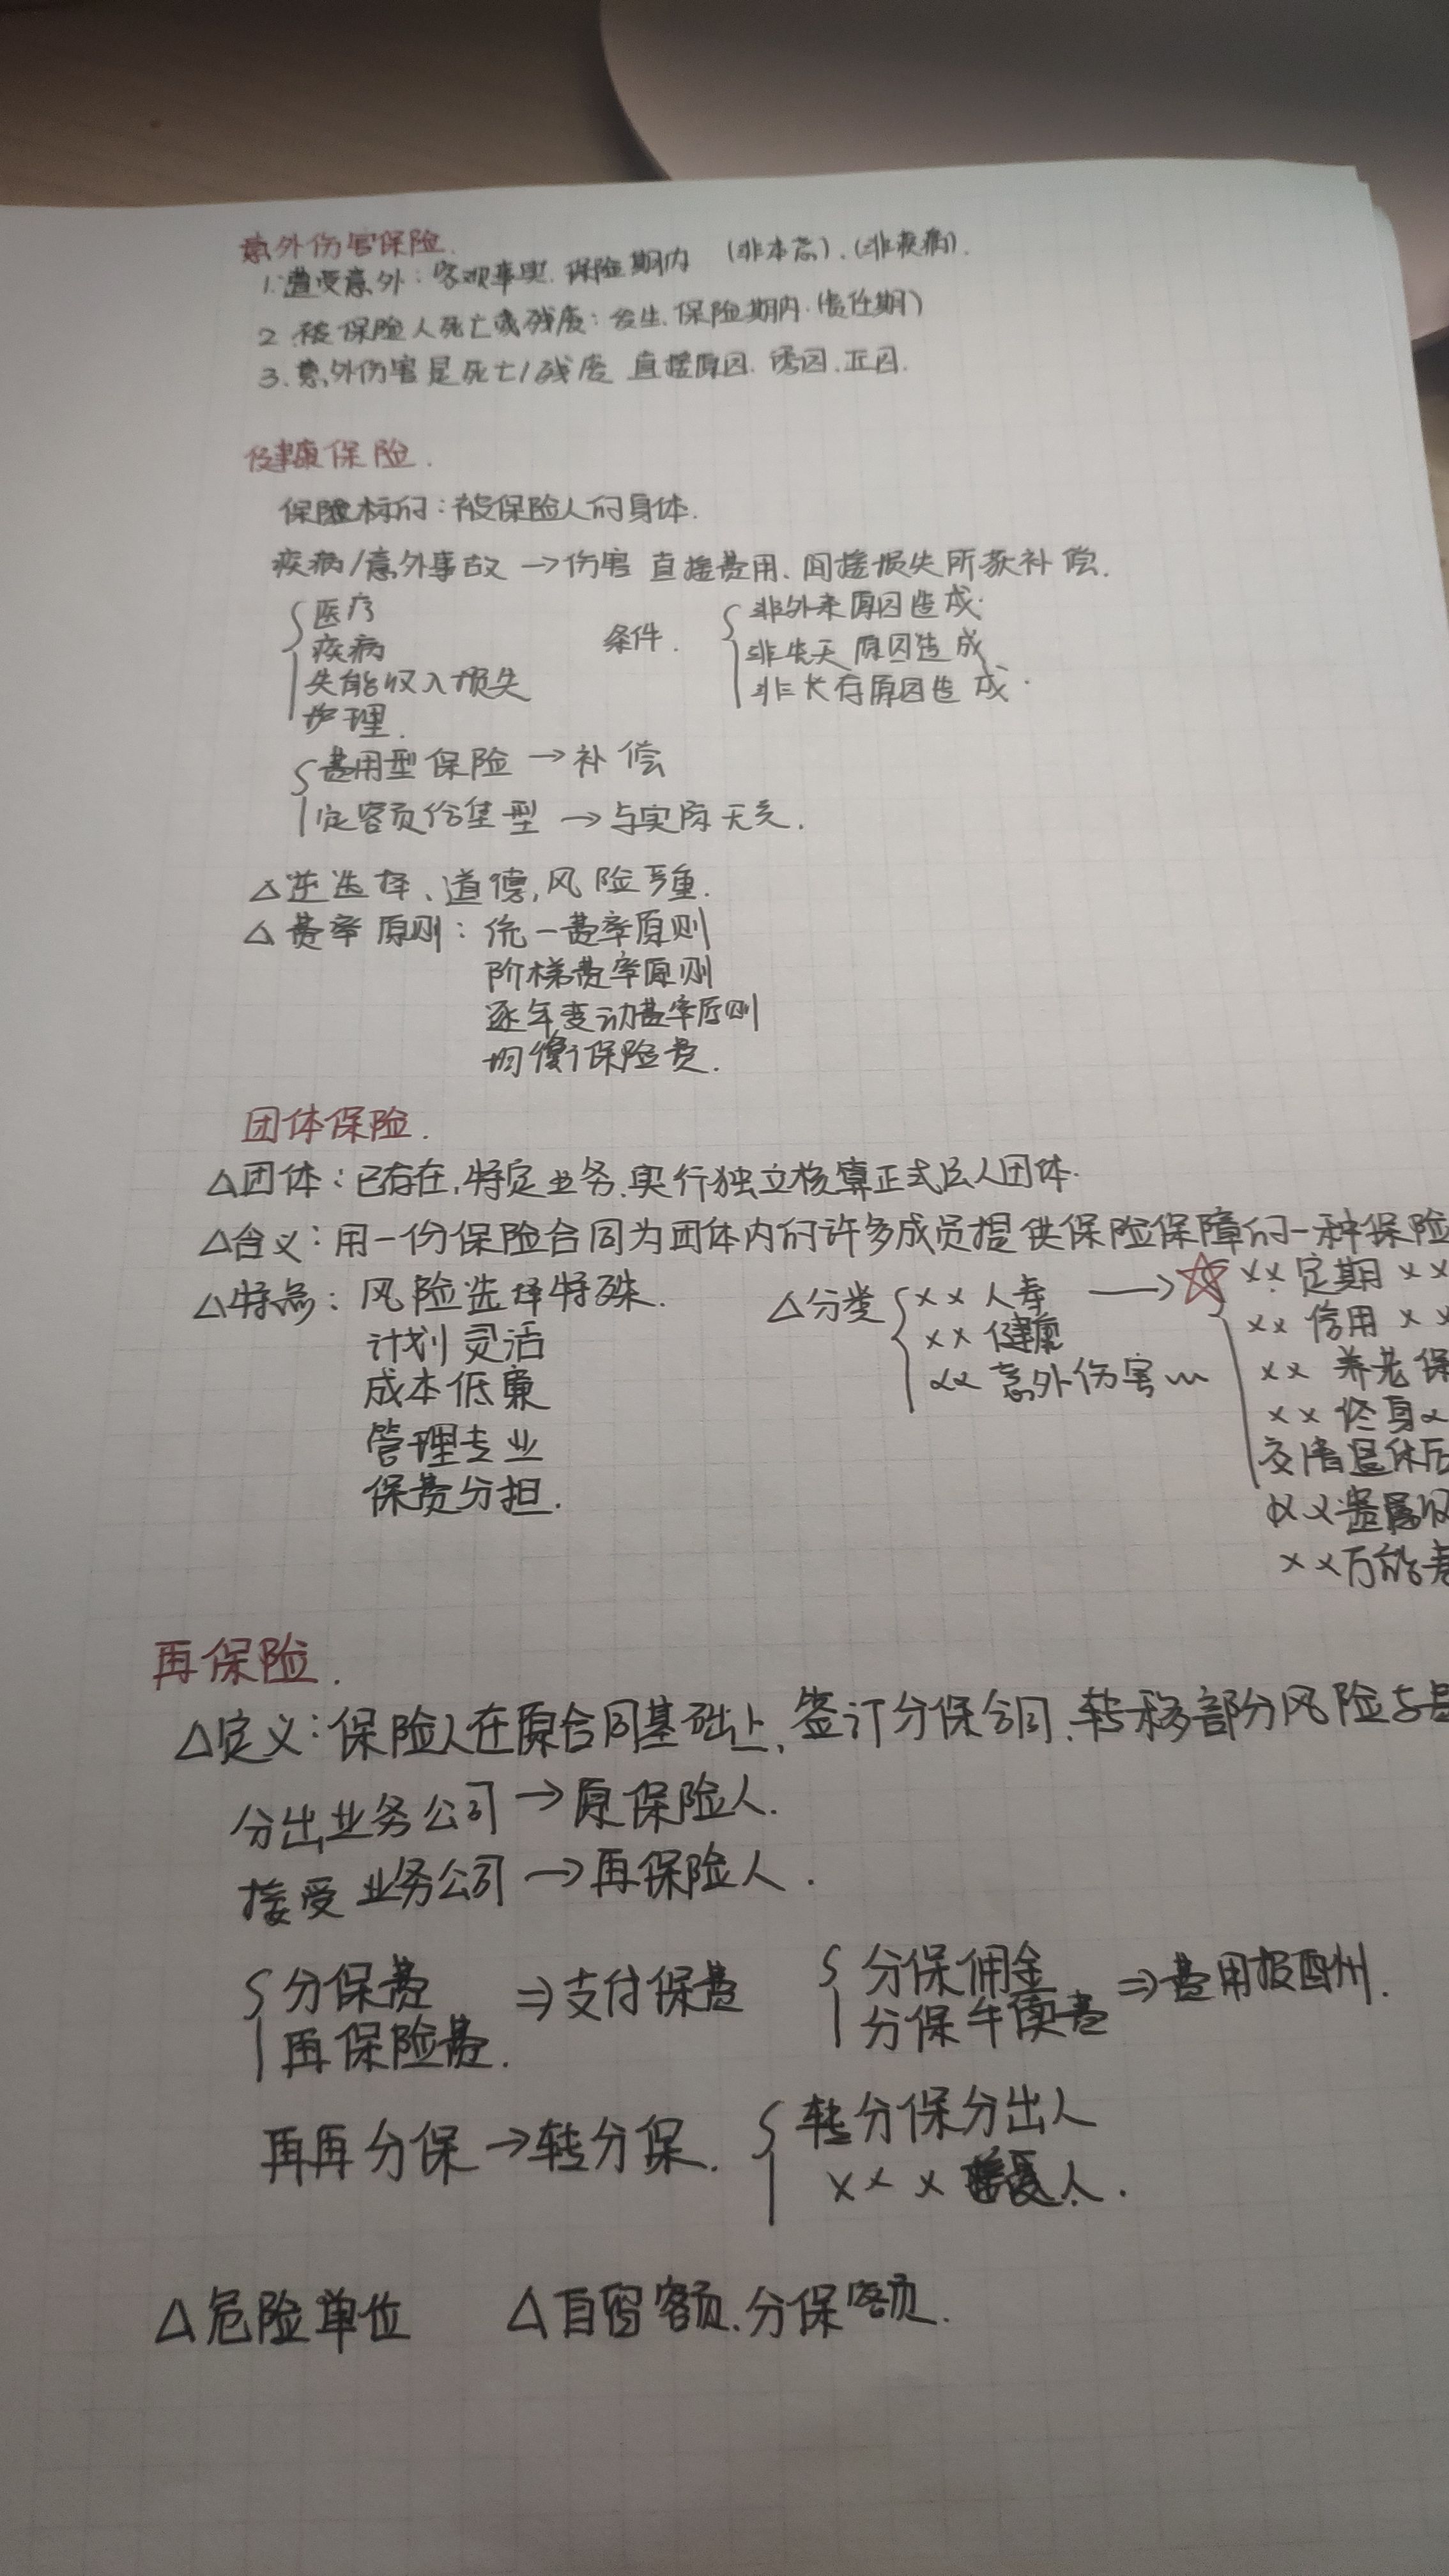 意外伤害保险.
1.遭受意外：客观事实.保险期内 (非本意).(非疾病).
2.被保险人死亡或残废：发生.保险期内.(责任期)
3.意外伤害是死亡/残废 直接原因.诱因.近因.
健康保险.
保险标的：被保险人的身体.
疾病/意外事故→伤害 直接费用.间接损失所获补偿.
医疗
疾病
失能收入损失
护理.
条件.
非外来原因造成.
非先天原因造成
非长存原因造成.
费用型保险→补偿
定额给付型→与实际无关.
△逆选择、道德,风险严重.
△费率原则：统一费率原则
阶梯费率原则
逐年变动费率原则
均衡保险费.
团体保险.
△团体：已存在,特定业务.实行独立核算正式法人团体.
△含义：用一份保险合同为团体内的许多成员提供保险保障的一种保险
△特点：风险选择特殊.
计划灵活
成本低廉
管理专业
保费分担.
△分类
××人寿 → ☆
××健康
××意外伤害~
××定期××
××信用××
××养老保
××终身×
交清退休后
××遗属收
××万能寿
再保险.
△定义：保险人在原合同基础上,签订分保合同.转移部分风险与
分出业务公司→原保险人.
接受业务公司→再保险人.
分保费
再保险费.
⇒支付保费
分保佣金
分保手续费
⇒费用报酬.
再再分保→转分保.
转分保分出人
×××接受人.
△危险单位 △自留额.分保额.